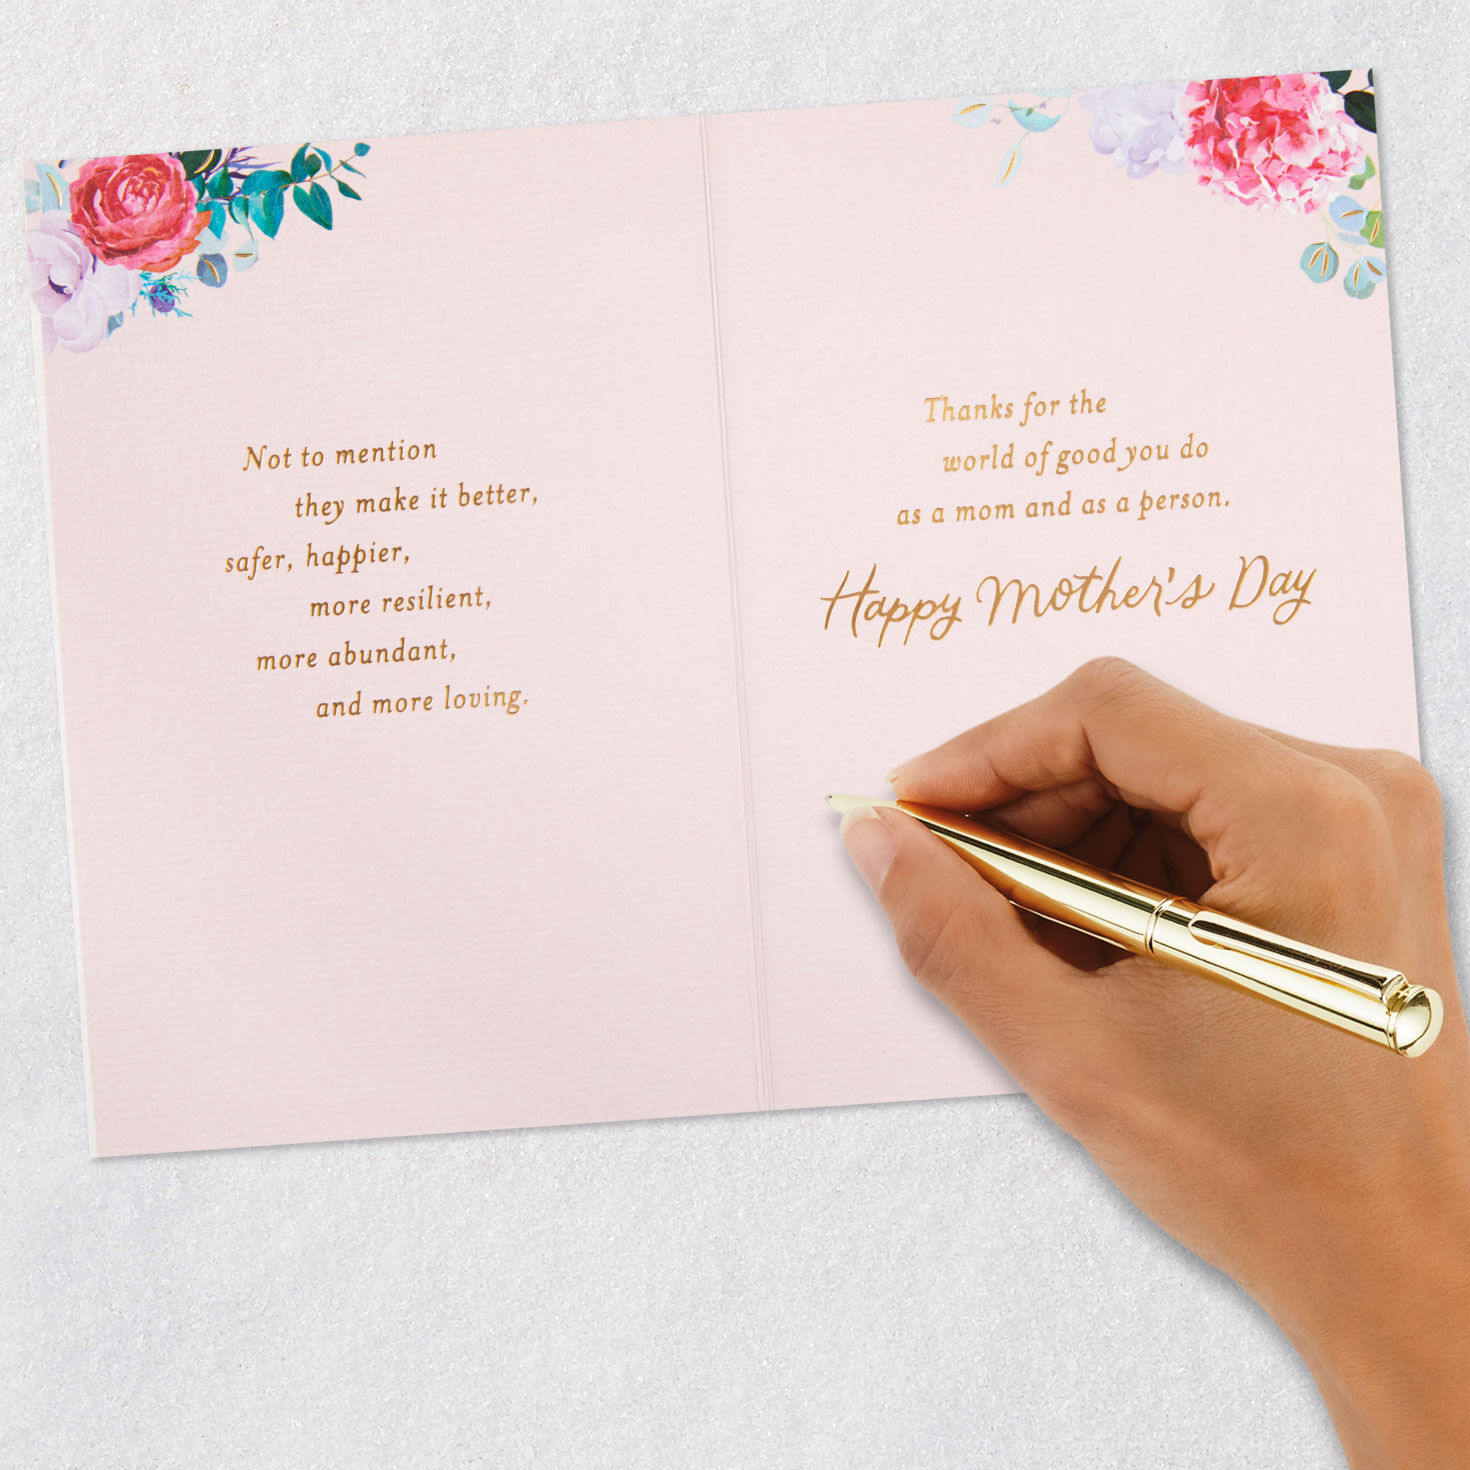 Not to mention
they make it better,
safer, happier,
more resilient,
more abundant,
and more loving.
Thanks for the
world of good you do
as a mom and as a person.
Happy Mother's Day